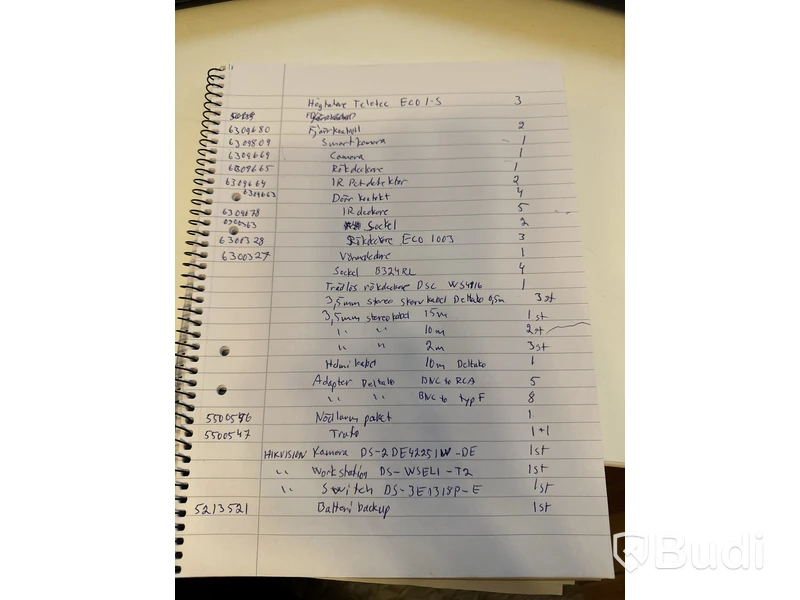 Högtalare Teletec ECO 1-S 3
6309680 Fjärrkontroll 2
6309809 Smartkamera 1
6309669 Camera 1
6309665 Rökdeckare 1
6309664 IR Petdetektor 2
6309663 Dörr kontakt 4
6309078 IR deckare 5
Sockel 2
6300328 Rökdeckare ECO 1003 3
6300327 Värmedeckare 1
Sockel B324RL 4
Trådlös rökdeckare DSC WS4916 1
3,5mm stereo skarvkabel Deltaco 0,5m 3st
3,5mm stereokabel 15m 1st
" " 10m 2st
" " 2m 3st
Hdmi kabel 10m Deltako 1
Adapter Deltako BNC to RCA 5
" " BNC to typ F 8
5500546 Nödlarm paket 1
5500547 1+1
HIKVISION Kamera DS-2DE4225IW-DE 1st
" Workstation DS-WSELI-T2 1st
" Switch DS-3E1318P-E 1st
5213521 Batteri backup 1st
Budi